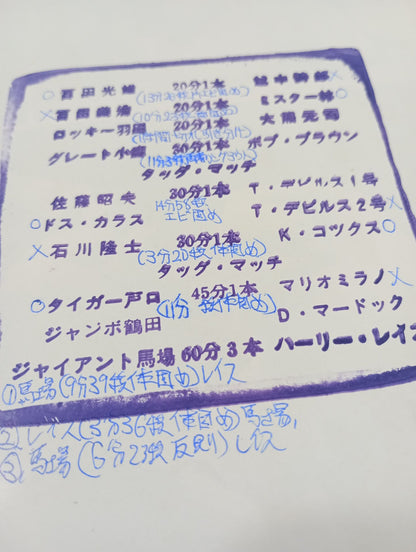 ○百田光雄 20分1本 越中詩郎×
(13分28秒片エビ固め)
×百田義浩 20分1本 ミスター林○
(10分23秒体固め)
ロッキー羽田 20分1本 大熊元司
(時間切れ引き分け)
グレート小鹿 30分1本 ボブ・ブラウン
タッグ・マッチ
佐藤昭夫 30分1本 T・デビルス1号
14分58秒
エビ固め
○ドス・カラス T・デビルス2号×
×石川隆士 30分1本 K・コックス○
(3分20秒体固め)
タッグ・マッチ
○タイガー戸口 45分1本 マリオミラノ×
(11分 秒体固め)
ジャンボ鶴田 D・マードック
ジャイアント馬場 60分3本 ハーリー・レイス
①馬場(9分39秒体固め)レイス
②レイス(3分36秒体固め)馬場、
③馬場(6分23秒反則)レイス